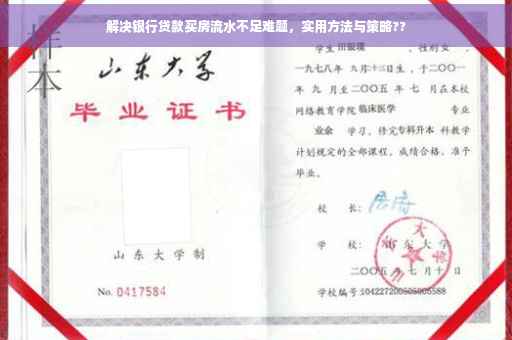 解决银行贷款买房流水不足难题，实用方法与策略??
样本
山东大学
毕业证书
山东大学制
No. 0417584
学生 田银环 ，性别女 ，
一九七八年 九月十三日生，于二〇〇一
年 九 月至二〇〇五 年 七 月在本校
网络教育学院 临床医学 专业
业余 学习，修完专科升本 科教学
计划规定的全部课程，成绩合格，准予
毕业。
校 长：
学 校：山东大学
二〇〇五 年 七 月 十 日
学校编号:104227200505005588